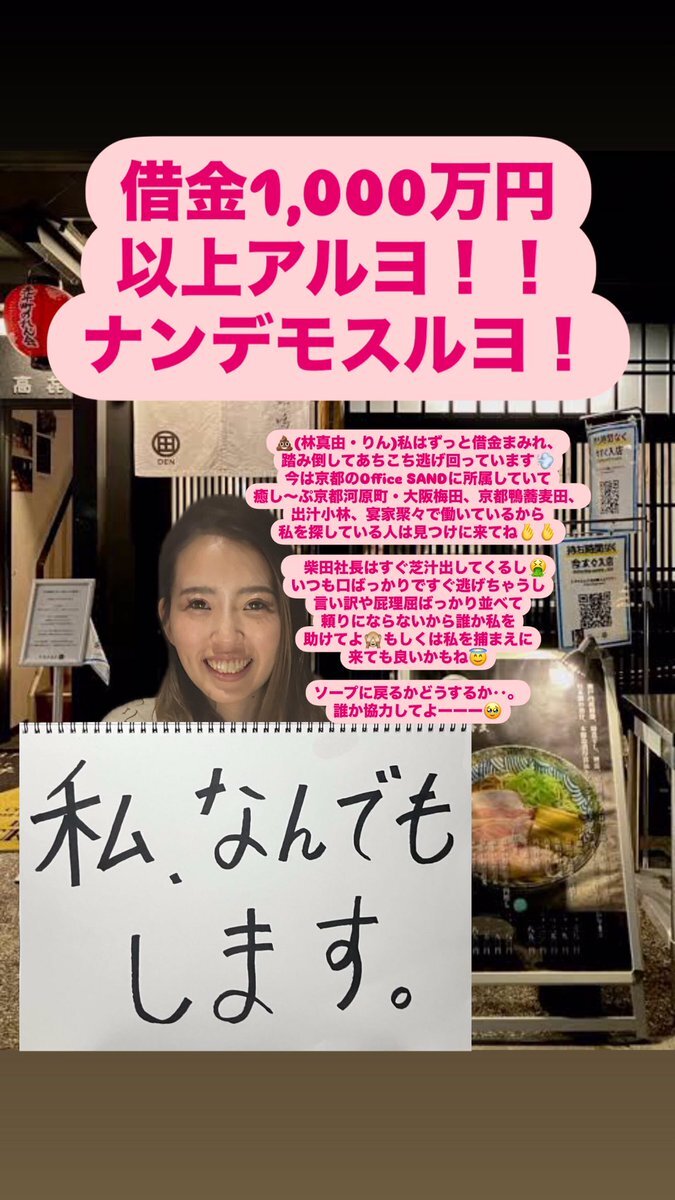 借金1,000万円
以上アルヨ！！
ナンデモスルヨ！
💩(林真由・りん)私はずっと借金まみれ、
踏み倒してあちこち逃げ回っています💨
今は京都のOffice SANDに所属していて
癒し〜ぷ京都河原町・大阪梅田、京都鴨蕎麦田、
出汁小林、宴家聚々で働いているから
私を探している人は見つけに来てね🫰🫰
柴田社長はすぐ芝汁出してくるし🤮
いつも口ばっかりですぐ逃げちゃうし
言い訳や屁理屈ばっかり並べて
頼りにならないから誰か私を
助けてよ🙈もしくは私を捕まえに
来ても良いかもね😇
ソープに戻るかどうするか‥。
誰か協力してよーーー🥹
私、なんでも
します。
田
DEN
待ち時間なく
今すぐ入店